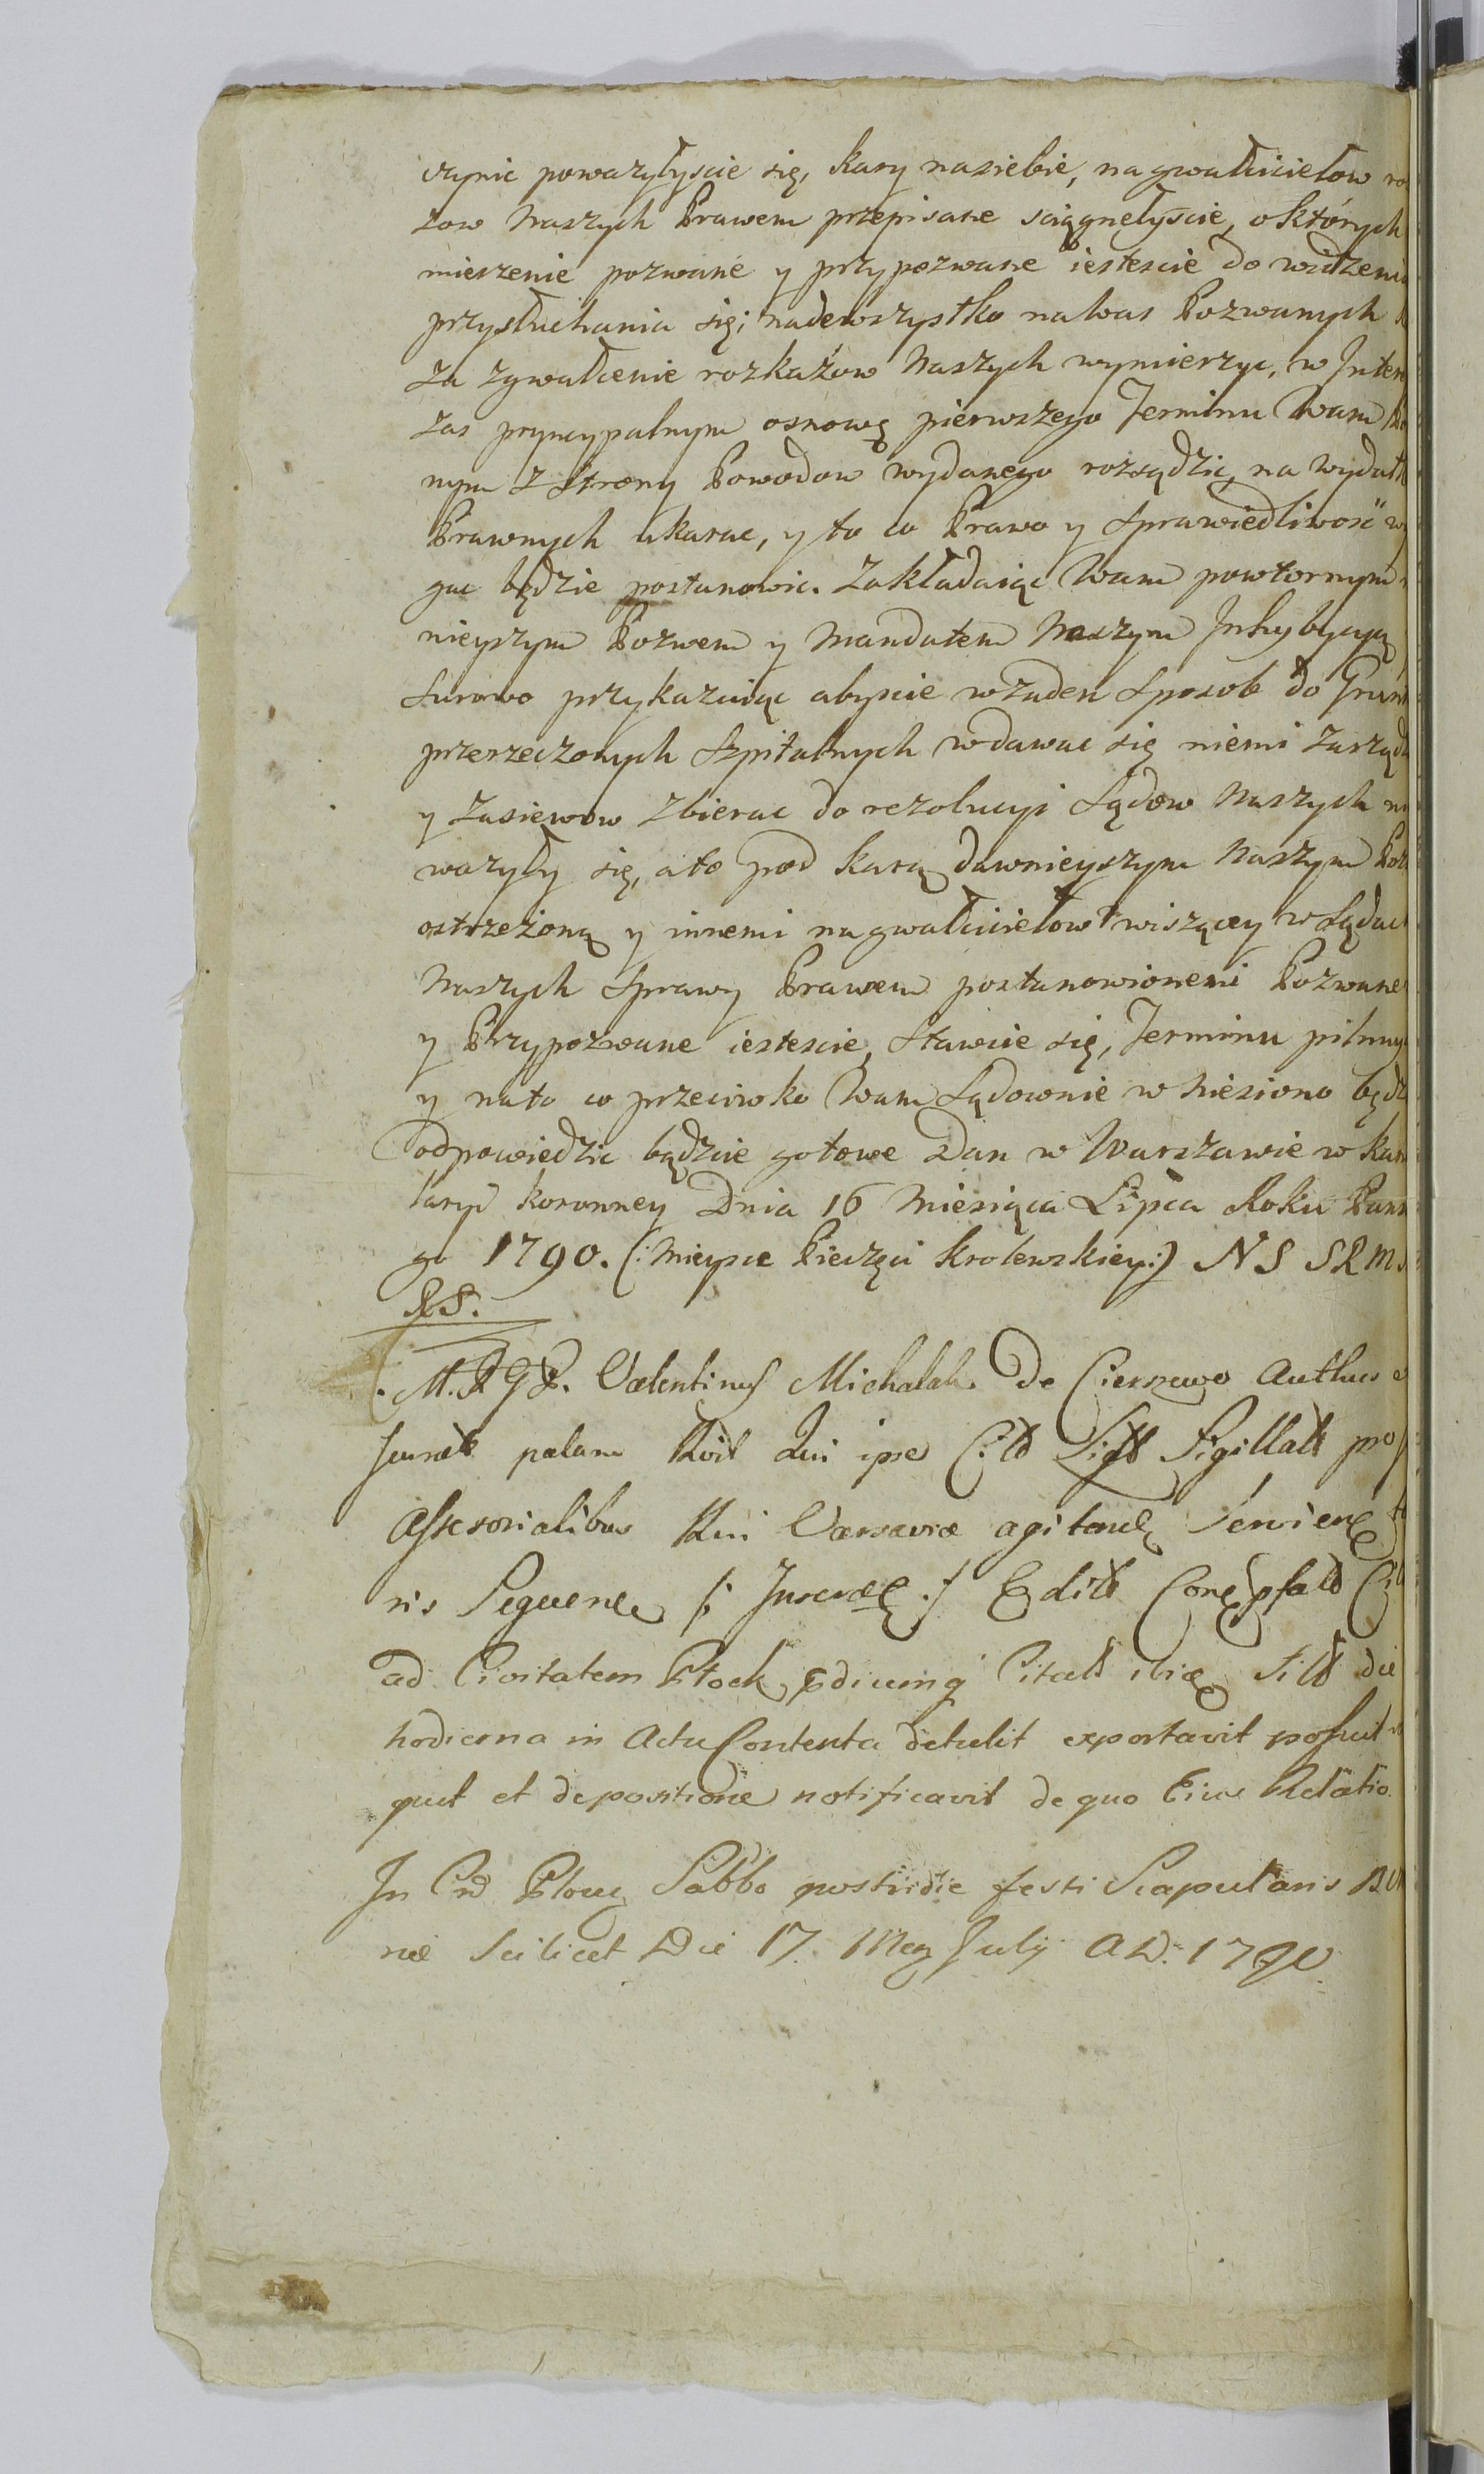 czynic poważyłyscie się, kary nasiebie, na gwałcicielow ro
zow Naszych Prawem przepisane sciągnełyscie, o których
mierzenie pozwane y przypozwane iestescie do widzenia
przysłuchania się; nadewszystko na Was Pozwanych
za zgwałcenie rozkazow Naszych wymierzyc, w Inten
zas pryncypalnym osnowę pierwszego Terminu Wam
nym z Strony Powodow wydanego rozsądzic, na wydatk
Prawnych ukarac, y to co Prawo y Sprawiedliwosć wy
gac będzie postanowic. Zakładaiąc Wam powtornym
nieyszym Pozwem y Mandatem Naszym Inhybycyą
Surowo przykazuiąc abyscie w żaden Sposob do Grun
przerzeczonych Szpitalnych wdawac się niemi zarząd
y Zasiewow zbierac do rezolucyi Sądow Naszych
ważyły się, a to pod karą dawnieyszym Naszym Poz
ostrzeżoną y innemi na gwałcicielow wiszącey w Sądac
Naszych Sprawy Prawem postanowionemi Pozwane
y Przypozwane iestescie, Stawcie się, Terminu pilnuy
y na to co przeciwko Wam Sądownie w niesiono będz
odpowiedzic bądzcie gotowe Dan w Warszawie w kan
laryi koronney Dnia 16 Miesiąca Lipca Roku Pans
go 1790. (: Mieysce Pieczęci krolewskiey :) NS SRM
RS.
M. R G R. Valentinus Michalak de Cierszewo Authus
Jurat palam Rcit Qui ipse Sigillatt pro
Assesorialibus Rni Varsaviæ agitand Servien
ris Sequen Edit
ad Civitatem Płock Citatt die
hodierna in Actu Contenta detulit exportavit posuit
quit et depositione notificavit de quo Eius Relatio
In Płoc Sabbo postridie festi Scapularis
næ Scilicet Die 17. Mens July A D. 1790.